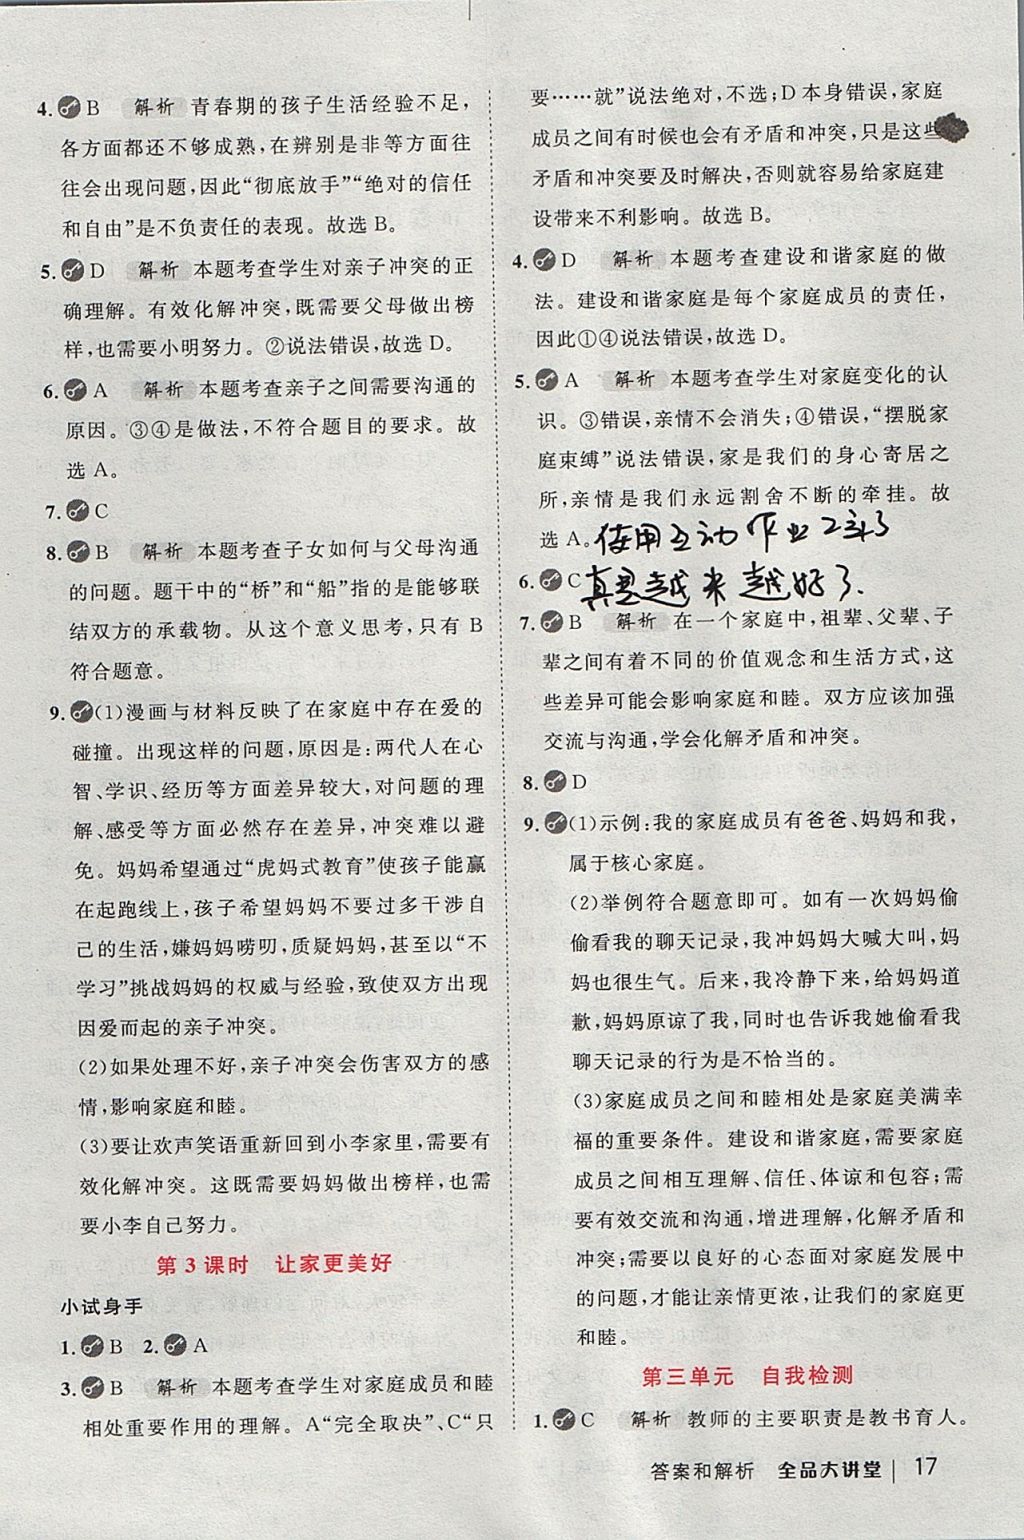 4. B 解析 青春期的孩子生活经验不足,
各方面都还不够成熟,在辨别是非等方面往
往会出现问题,因此“彻底放手”“绝对的信任
和自由”是不负责任的表现。故选 B。
5. D 解析 本题考查学生对亲子冲突的正
确理解。有效化解冲突,既需要父母做出榜
样,也需要小明努力。②说法错误,故选 D。
6. A 解析 本题考查亲子之间需要沟通的
原因。③④是做法,不符合题目的要求。故
选 A。
7. C
8. B 解析 本题考查子女如何与父母沟通
的问题。题干中的“桥”和“船”指的是能够联
结双方的承载物。从这个意义思考,只有 B
符合题意。
9. (1)漫画与材料反映了在家庭中存在爱的
碰撞。出现这样的问题,原因是:两代人在心
智、学识、经历等方面差异较大,对问题的理
解、感受等方面必然存在差异,冲突难以避
免。妈妈希望通过“虎妈式教育”使孩子能赢
在起跑线上,孩子希望妈妈不要过多干涉自
己的生活,嫌妈妈唠叨,质疑妈妈,甚至以“不
学习”挑战妈妈的权威与经验,致使双方出现
因爱而起的亲子冲突。
(2)如果处理不好,亲子冲突会伤害双方的感
情,影响家庭和睦。
(3)要让欢声笑语重新回到小李家里,需要有
效化解冲突。这既需要妈妈做出榜样,也需
要小李自己努力。
第 3 课时 让家更美好
小试身手
1. B 2. A
3. B 解析 本题考查学生对家庭成员和睦
相处重要作用的理解。A“完全取决”、C“只
要……就”说法绝对,不选;D 本身错误,家庭
成员之间有时候也会有矛盾和冲突,只是这些
矛盾和冲突要及时解决,否则就容易给家庭建
设带来不利影响。故选 B。
4. D 解析 本题考查建设和谐家庭的做
法。建设和谐家庭是每个家庭成员的责任,
因此①④说法错误,故选 D。
5. A 解析 本题考查学生对家庭变化的认
识。③错误,亲情不会消失;④错误,“摆脱家
庭束缚”说法错误,家是我们的身心寄居之
所,亲情是我们永远割舍不断的牵挂。故
选 A。使用互动作业工具了
6. C 真是越来越好了.
7. B 解析 在一个家庭中,祖辈、父辈、子
辈之间有着不同的价值观念和生活方式,这
些差异可能会影响家庭和睦。双方应该加强
交流与沟通,学会化解矛盾和冲突。
8. D
9. (1)示例:我的家庭成员有爸爸、妈妈和我,
属于核心家庭。
(2)举例符合题意即可。如有一次妈妈偷
偷看我的聊天记录,我冲妈妈大喊大叫,妈
妈也很生气。后来,我冷静下来,给妈妈道
歉,妈妈原谅了我,同时也告诉我她偷看我
聊天记录的行为是不恰当的。
(3)家庭成员之间和睦相处是家庭美满幸
福的重要条件。建设和谐家庭,需要家庭
成员间相互理解、信任、体谅和包容;需
要有效交流和沟通,增进理解,化解矛盾和
冲突;需要以良好的心态面对家庭发展中
的问题,才能让亲情更浓,让我们的家庭更
和睦。
第三单元 自我检测
1. C 解析 教师的主要职责是教书育人。
答案和解析 全品大讲堂 17